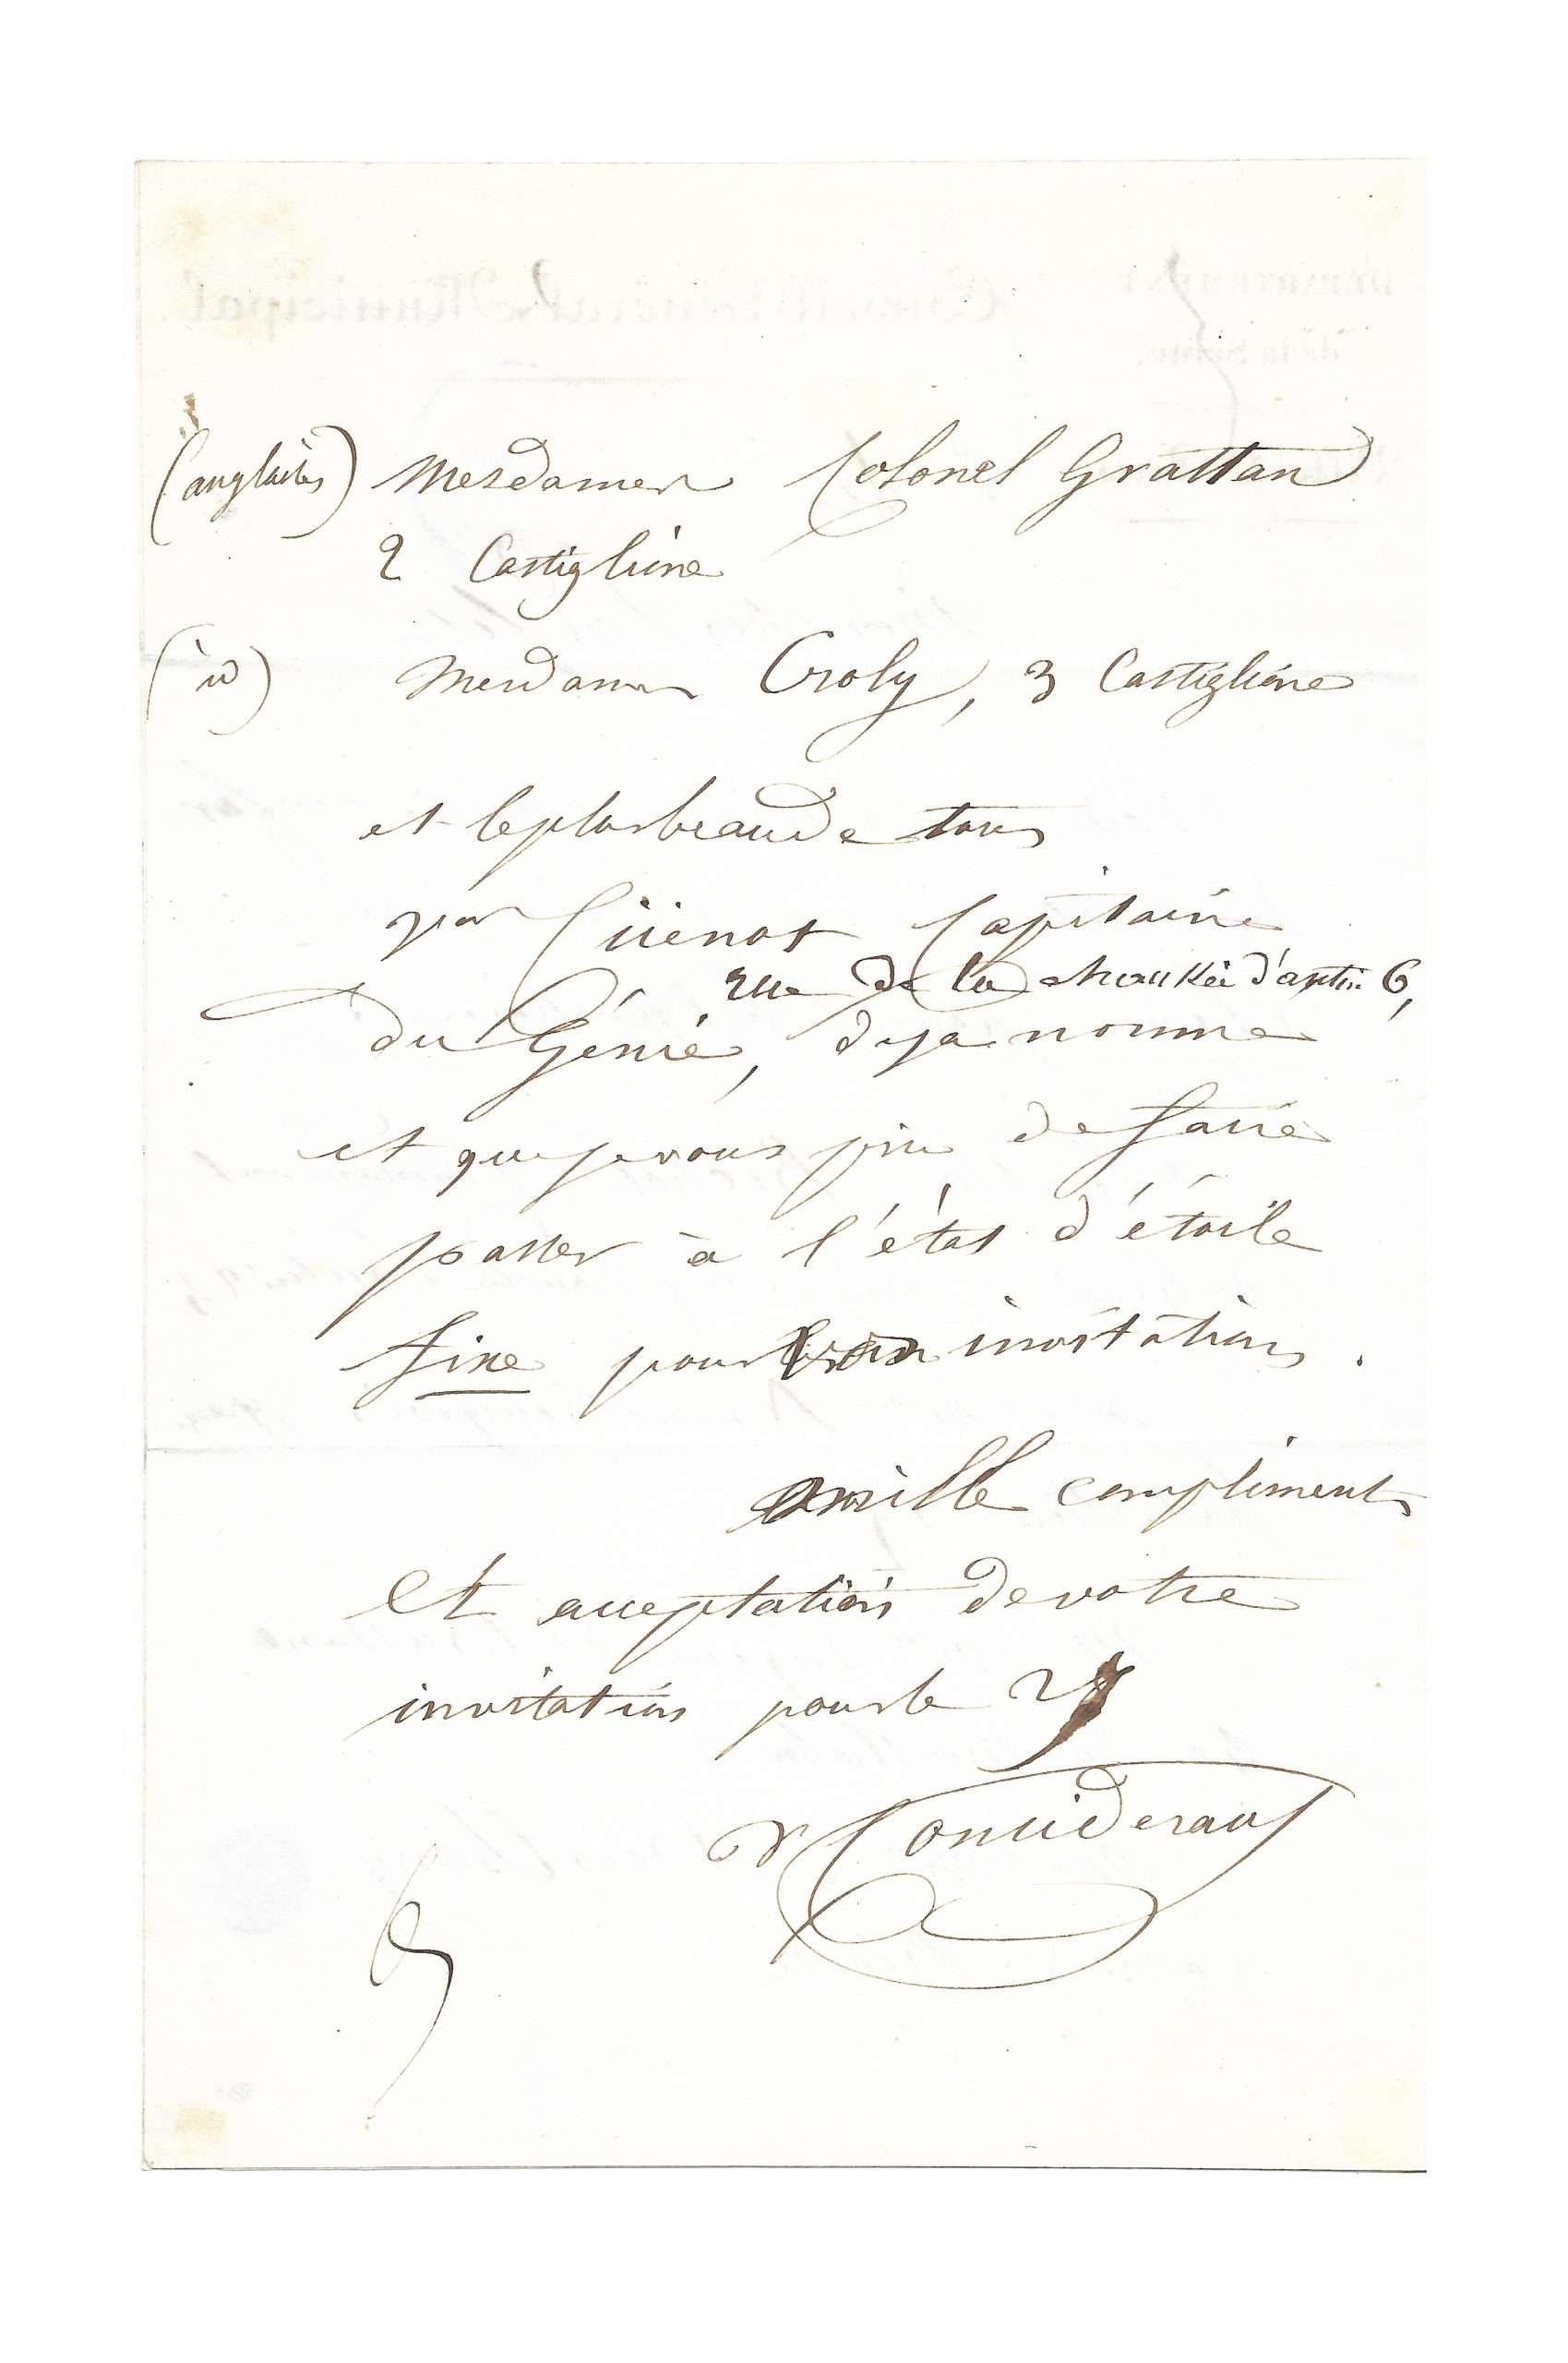 (anglaises) Mesdames Colonel Grattan
2 Castiglione
(id) Mesdames Croly, 3 Castiglione
et le plus beau de tous
Guenot Capitaine
rue de la chaussée d'antin 6,
du Génie, deja nommé
et que je vous prie de faire
passer à l'état d'étoile
fixe pour invitations.
mille compliments
Et acceptation de votre
invitation pour le
V Considerant